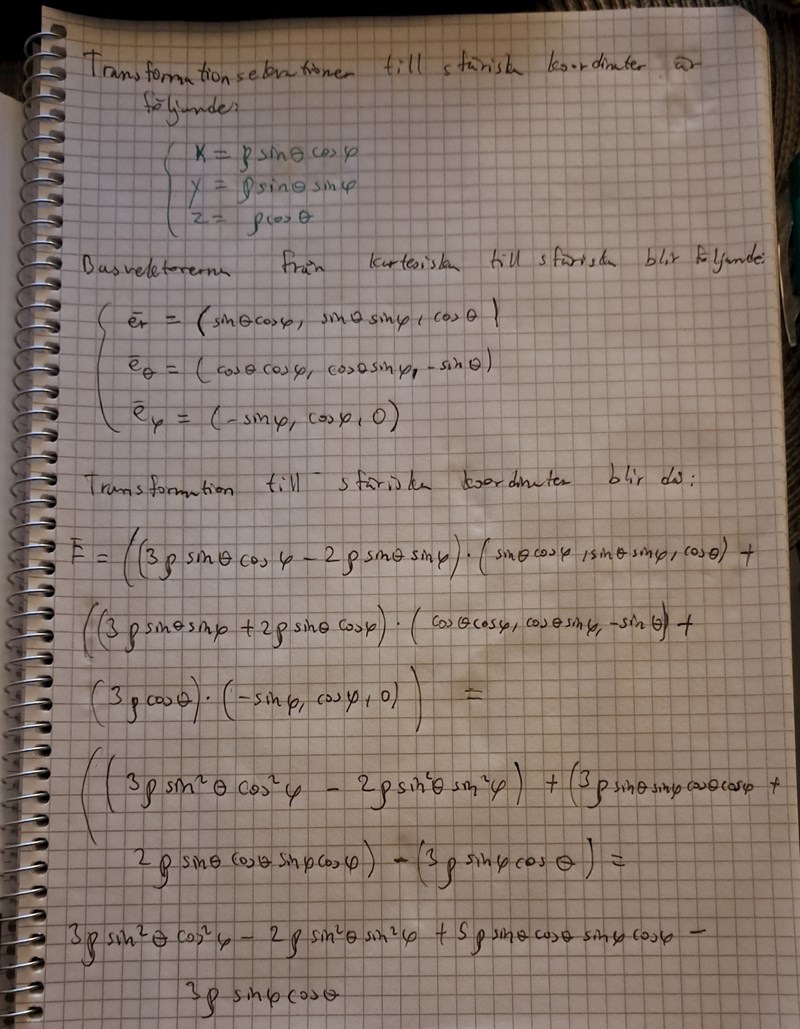 Transformationsekvationer till sfäriska koordinater är
följande:
x = ρ sinθ cosφ
y = ρ sinθ sinφ
z = ρ cosθ
Basvektorerna från kartesiska till sfäriska blir följande:
ēr = (sinθ cosφ, sinθ sinφ, cosθ)
ēθ = (cosθ cosφ, cosθ sinφ, -sinθ)
ēφ = (-sinφ, cosφ, 0)
Transformation till sfäriska koordinater blir då:
Ē = ((3ρ sinθ cosφ - 2ρ sinθ sinφ) · (sinθ cosφ, sinθ sinφ, cosθ) +
((3ρ sinθ sinφ + 2ρ sinθ cosφ) · (cosθ cosφ, cosθ sinφ, -sinθ) +
(3ρ cosθ) · (-sinφ, cosφ, 0)) =
((3ρ sin²θ cos²φ - 2ρ sin²θ sin²φ) + (3ρ sinθ sinφ cosθ cosφ +
2ρ sinθ cosθ sinφ cosφ) - (3ρ sinφ cosθ) =
3ρ sin²θ cos²φ - 2ρ sin²θ sin²φ + 5ρ sinθ cosθ sinφ cosφ -
3ρ sinφ cosθ